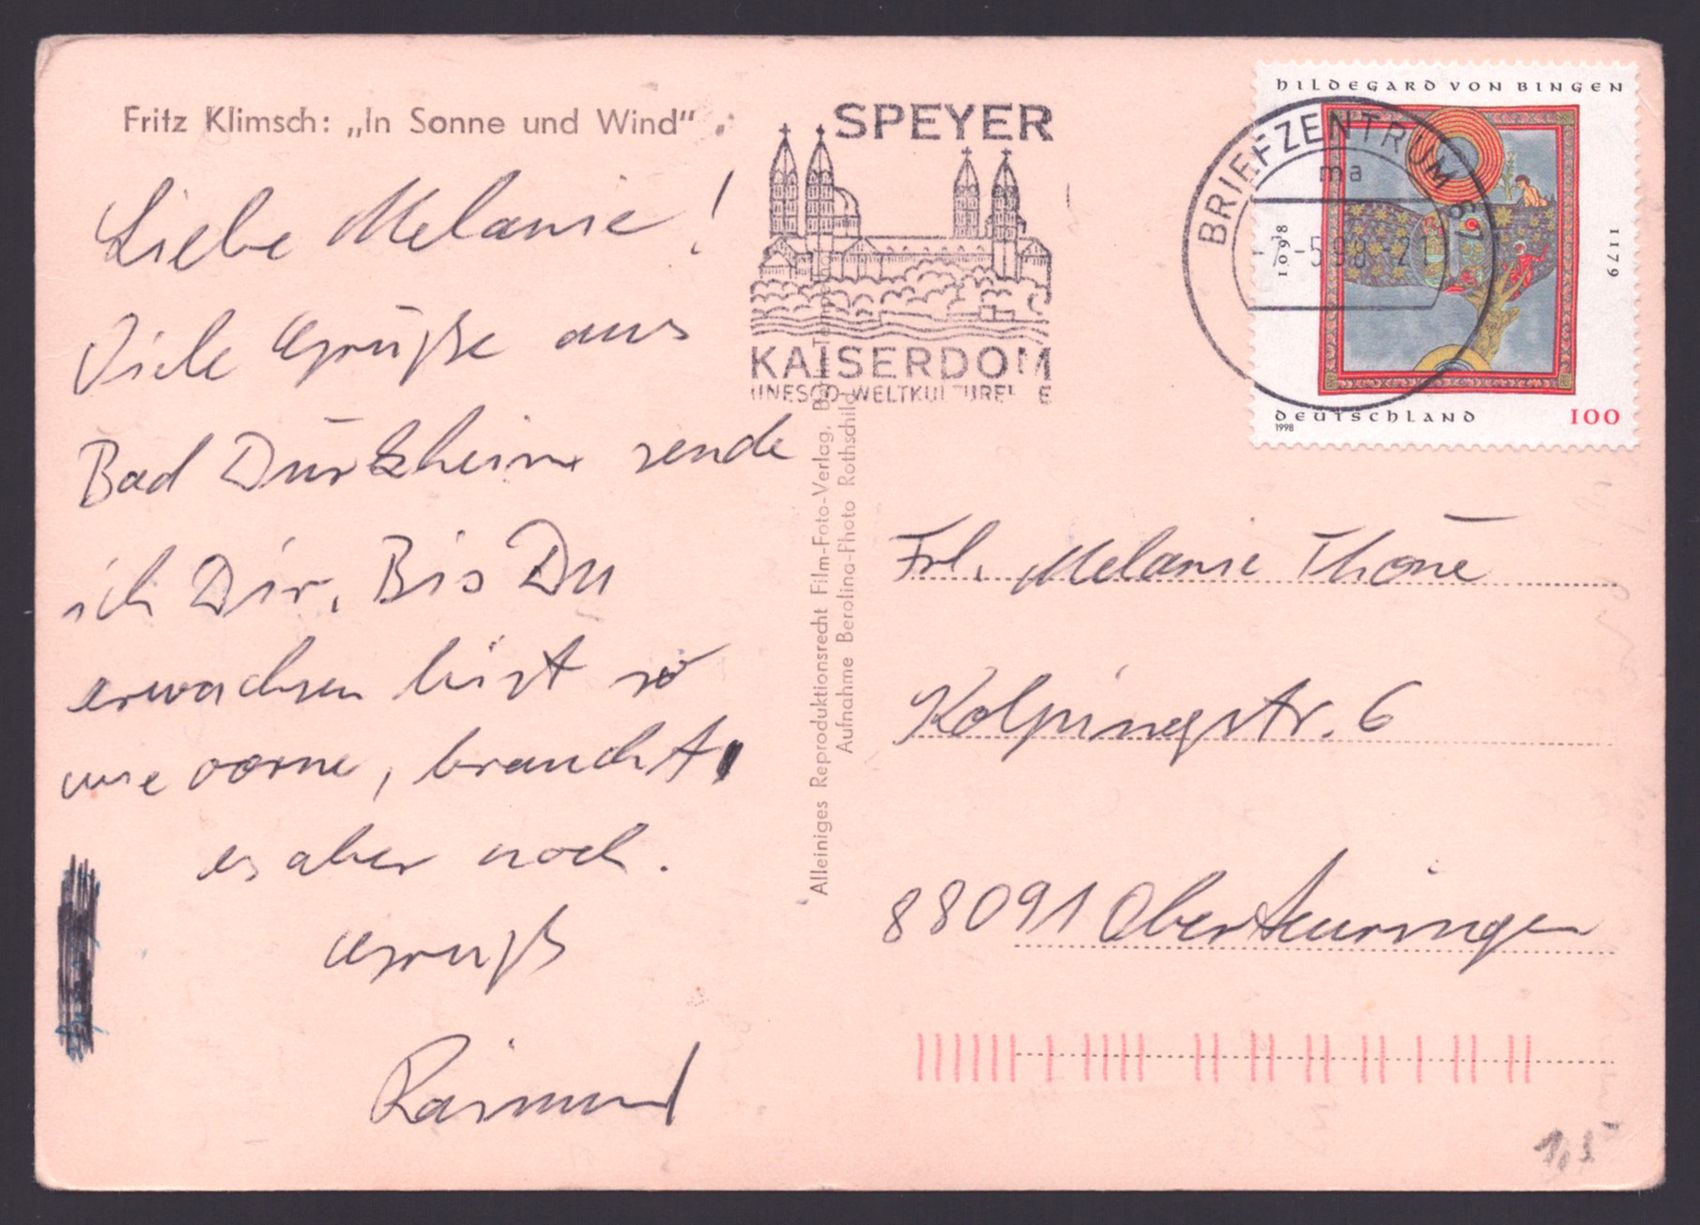 Fritz Klimsch: „In Sonne und Wind"
Liebe Melanie!
Viele Grüße aus
Bad Dürkheim sende
ich Dir. Bis Du
erwachsen bist so
wie vorne, braucht
es aber noch.
Gruß
Raimund
SPEYER
KAISERDOM
UNESCO-WELTKULTURE E
Alleiniges Reproduktionsrecht Film-Foto-Verlag,
Aufnahme Berolina-Photo Rothschild
BRIEFZENTRUM 67
ma
-7.-5.98-21
HILDEGARD VON BINGEN
1098
1179
DEUTSCHLAND
100
1998
Frl. Melanie Thöne
Kolpingstr. 6
88091 Oberteuringen